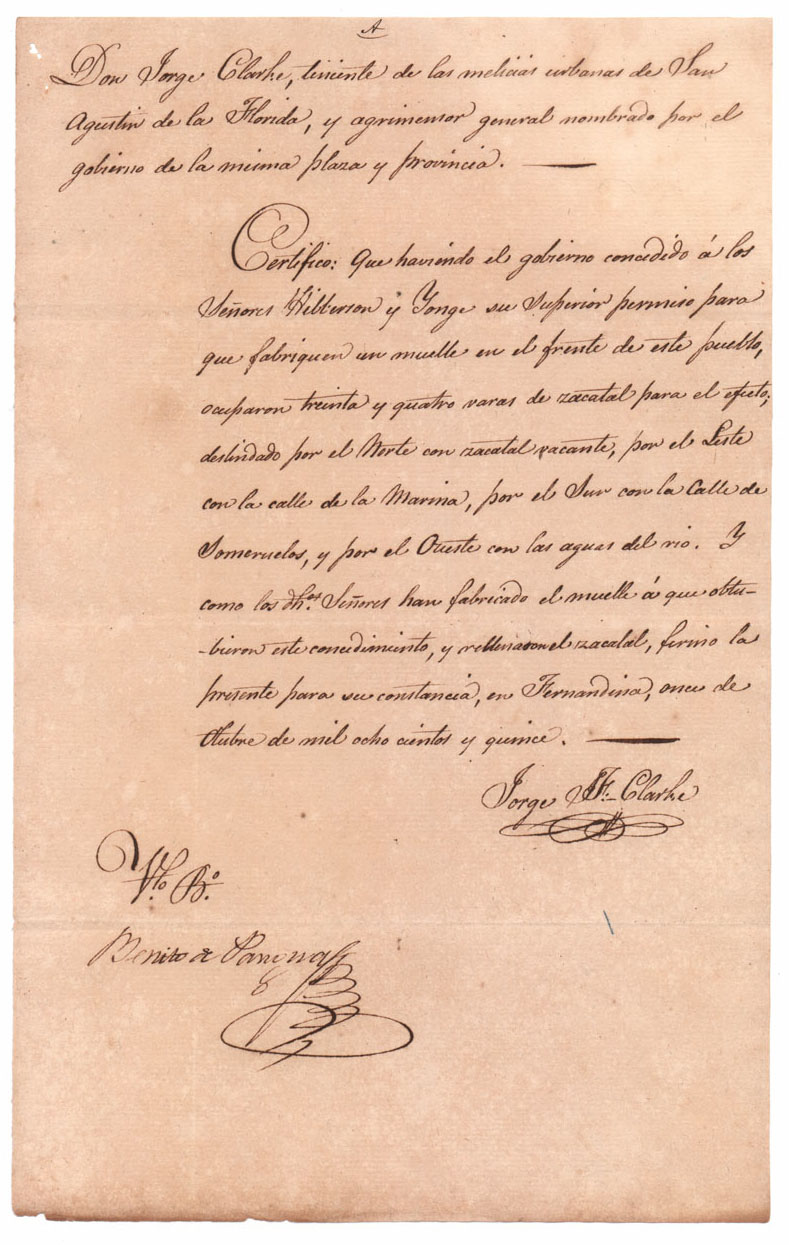 A
Don Jorge Clarke, teniente de las melicias urbanas de San
Agustin de la Florida, y agrimensor general nombrado por el
gobierno de la misma plaza y provincia.
Certifico: Que haviendo el gobierno concedido á los
Señores Hibberson y Yonge su superior permiso para
que fabriquen un muelle en el frente de este pueblo,
ocuparon treinta y quatro varas de zacatal para el efecto;
deslindado por el Norte con zacatal vacante, por el Leste
con la calle de la Marina, por el Sur con la Calle de
Someruelos, y por el Oueste con las aguas del rio. Y
como los dhos. Señores han fabricado el muelle á que obtu-
-bieron este concedimiento, y rellenaron el zacatal, firmo la
presente para su constancia, en Fernandina, once de
Otubre de mil ocho cientos y quince.
Jorge J. F. Clarke
Vto. Bo.
Benito de Pangua